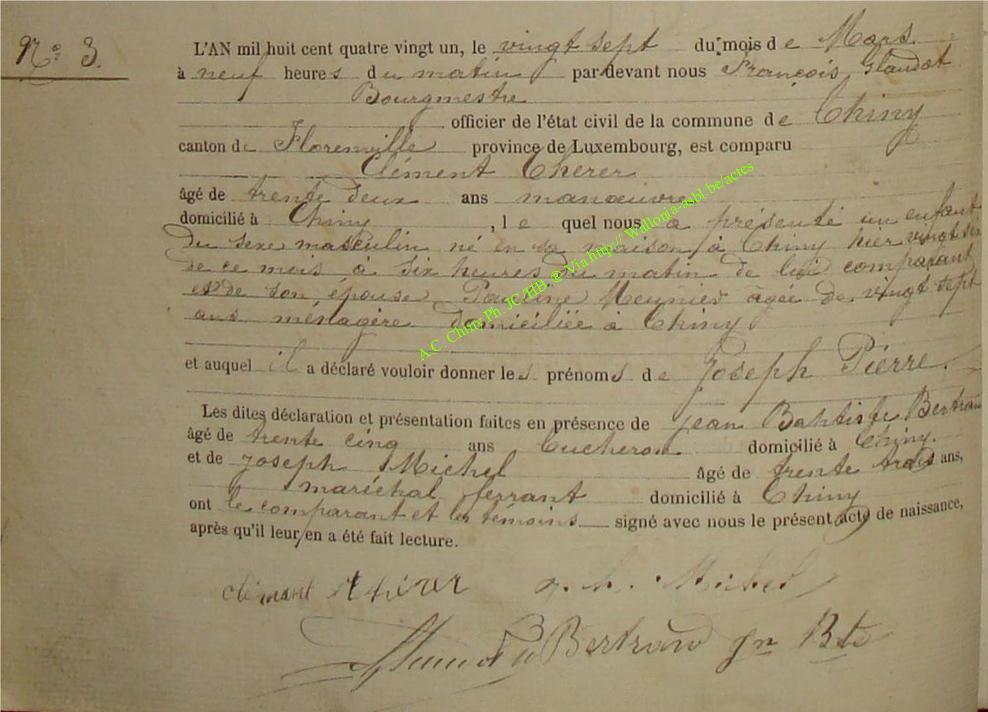 N° 3.
L'AN mil huit cent quatre vingt un, le vingt sept du mois de Mars
à neuf heures du matin par devant nous François Glaudot
Bourgmestre
officier de l'état civil de la commune de Chiny
canton de Florenville province de Luxembourg, est comparu
Clément Therer
âgé de trente deux ans manœuvre
domicilié à Chiny, le quel nous a présenté un enfant
du sexe masculin né en sa maison à Chiny hier vingt six
de ce mois à six heures du matin de lui comparant
et de son épouse Pauline Meunier âgée de vingt sept
ans ménagère domiciliée à Chiny
et auquel il a déclaré vouloir donner les prénoms de Joseph Pierre.
Les dites déclaration et présentation faites en présence de Jean Baptiste Bertrand
âgé de trente cinq ans bucheron domicilié à Chiny.
et de Joseph Michel âgé de trente trois ans,
maréchal ferrant domicilié à Chiny
ont le comparant et les témoins signé avec nous le présent acte de naissance,
après qu'il leur en a été fait lecture.
J. h. Michel
Bertrand Jn Bte
A.C. Chiny Ph. JC /HB. @ Via http// Wallonia-asbl.be/actes